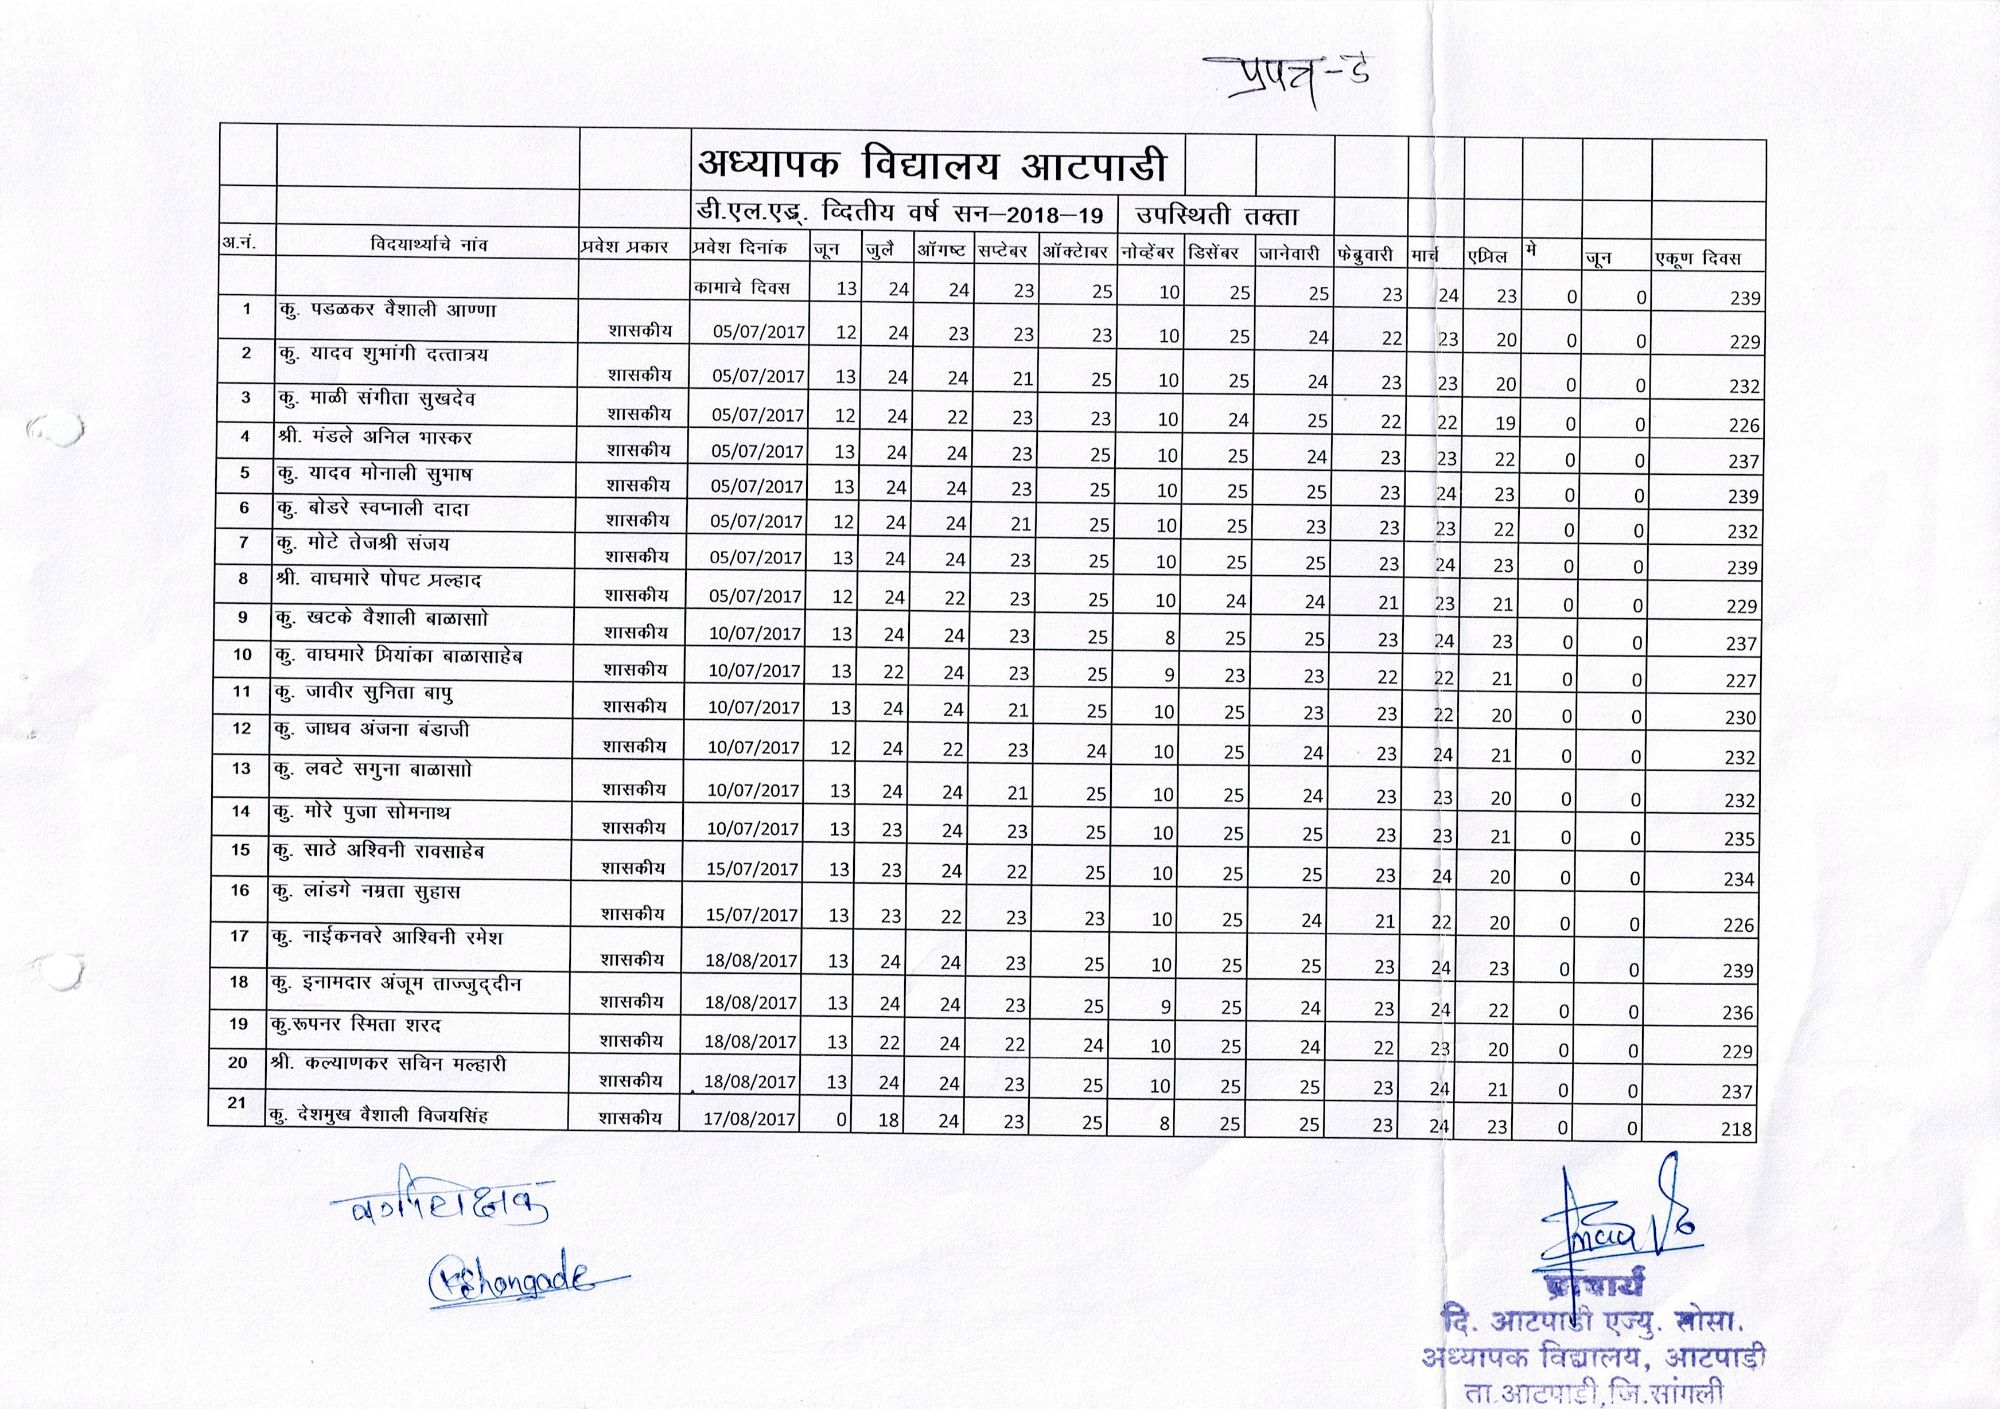 प्रपत्र-ड
अध्यापक विद्यालय आटपाडी
डी.एल.एड्. व्दितीय वर्ष सन–2018–19 उपस्थिती तक्ता
अ.नं. विदयार्थ्याचे नांव प्रवेश प्रकार प्रवेश दिनांक जून जुलै ऑगष्ट सप्टेबर ऑक्टोबर नोव्हेंबर डिसेंबर जानेवारी फेब्रुवारी मार्च एप्रिल मे जून एकूण दिवस
कामाचे दिवस 13 24 24 23 25 10 25 25 23 24 23 0 0 239
1 कु. पडळकर वैशाली आण्णा शासकीय 05/07/2017 12 24 23 23 23 10 25 24 22 23 20 0 0 229
2 कु. यादव शुभांगी दत्तात्रय शासकीय 05/07/2017 13 24 24 21 25 10 25 24 23 23 20 0 0 232
3 कु. माळी संगीता सुखदेव शासकीय 05/07/2017 12 24 22 23 23 10 24 25 22 22 19 0 0 226
4 श्री. मंडले अनिल भास्कर शासकीय 05/07/2017 13 24 24 23 25 10 25 24 23 23 22 0 0 237
5 कु. यादव मोनाली सुभाष शासकीय 05/07/2017 13 24 24 23 25 10 25 25 23 24 23 0 0 239
6 कु. बोडरे स्वप्नाली दादा शासकीय 05/07/2017 12 24 24 21 25 10 25 23 23 23 22 0 0 232
7 कु. मोटे तेजश्री संजय शासकीय 05/07/2017 13 24 24 23 25 10 25 25 23 24 23 0 0 239
8 श्री. वाघमारे पोपट प्रल्हाद शासकीय 05/07/2017 12 24 22 23 25 10 24 24 21 23 21 0 0 229
9 कु. खटके वैशाली बाळासाो शासकीय 10/07/2017 13 24 24 23 25 8 25 25 23 24 23 0 0 237
10 कु. वाघमारे प्रियांका बाळासाहेब शासकीय 10/07/2017 13 22 24 23 25 9 23 23 22 22 21 0 0 227
11 कु. जावीर सुनिता बापु शासकीय 10/07/2017 13 24 24 21 25 10 25 23 23 22 20 0 0 230
12 कु. जाधव अंजना बंडाजी शासकीय 10/07/2017 12 24 22 23 24 10 25 24 23 24 21 0 0 232
13 कु. लवटे सगुना बाळासाो शासकीय 10/07/2017 13 24 24 21 25 10 25 24 23 23 20 0 0 232
14 कु. मोरे पुजा सोमनाथ शासकीय 10/07/2017 13 23 24 23 25 10 25 25 23 23 21 0 0 235
15 कु. साठे अश्विनी रावसाहेब शासकीय 15/07/2017 13 23 24 22 25 10 25 25 23 24 20 0 0 234
16 कु. लांडगे नम्रता सुहास शासकीय 15/07/2017 13 23 22 23 23 10 25 24 21 22 20 0 0 226
17 कु. नाईकनवरे आश्विनी रमेश शासकीय 18/08/2017 13 24 24 23 25 10 25 25 23 24 23 0 0 239
18 कु. इनामदार अंजूम ताज्जुद्दीन शासकीय 18/08/2017 13 24 24 23 25 9 25 24 23 24 22 0 0 236
19 कु.रूपनर स्मिता शरद शासकीय 18/08/2017 13 22 24 22 24 10 25 24 22 23 20 0 0 229
20 श्री. कल्याणकर सचिन मल्हारी शासकीय 18/08/2017 13 24 24 23 25 10 25 25 23 24 21 0 0 237
21 कु. देशमुख वैशाली विजयसिंह शासकीय 17/08/2017 0 18 24 23 25 8 25 25 23 24 23 0 0 218
वर्गशिक्षक
प्राचार्य
दि. आटपाडी एज्यु. सोसा.
अध्यापक विद्यालय, आटपाडी
ता.आटपाडी,जि.सांगली